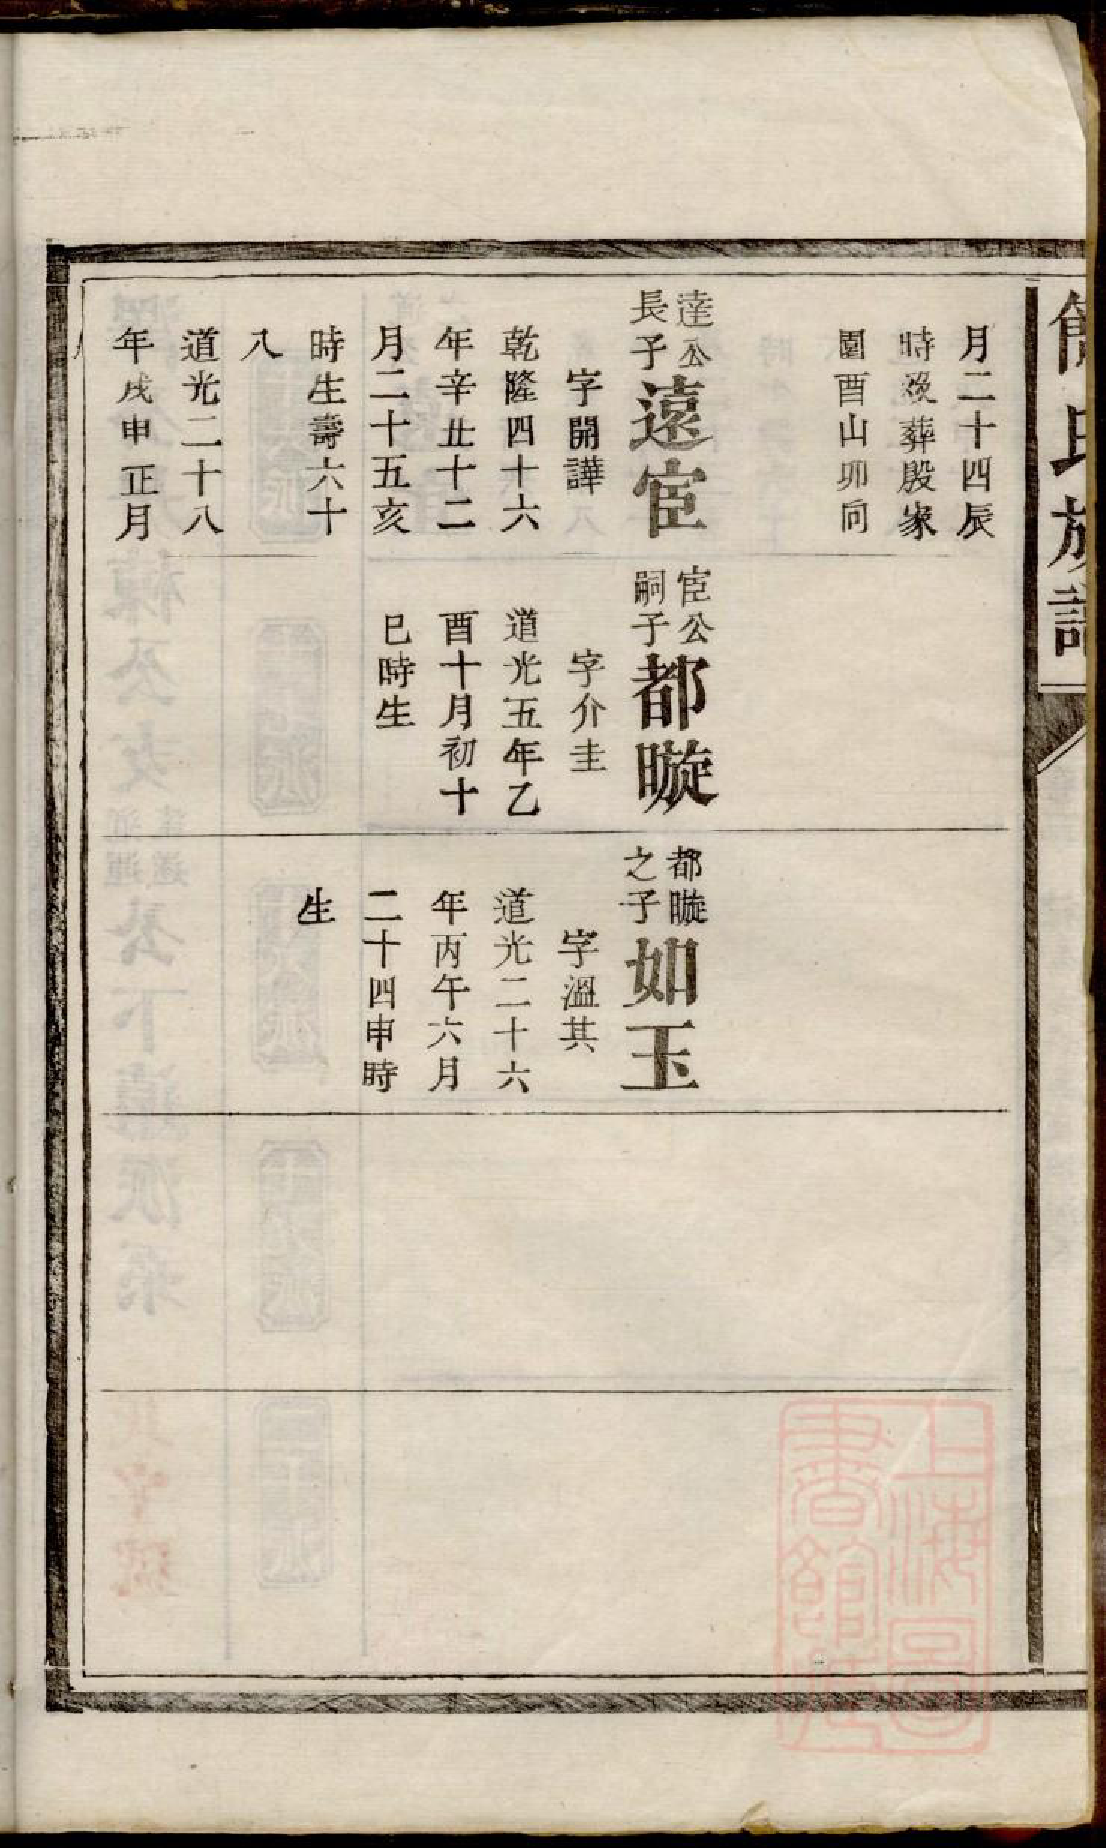 月二十四辰
時歿葬殷家
園酉山卯向
達公
長子
遠宦
字開譁
乾隆四十六
年辛丑十二
月二十五亥
時生壽六十
八
道光二十八
年戊申正月
宦公
嗣子
都暶
字介圭
道光五年乙
酉十月初十
巳時生
都暶
之子
如玉
字溫其
道光二十六
年丙午六月
二十四申時
生
上海圖
書館藏